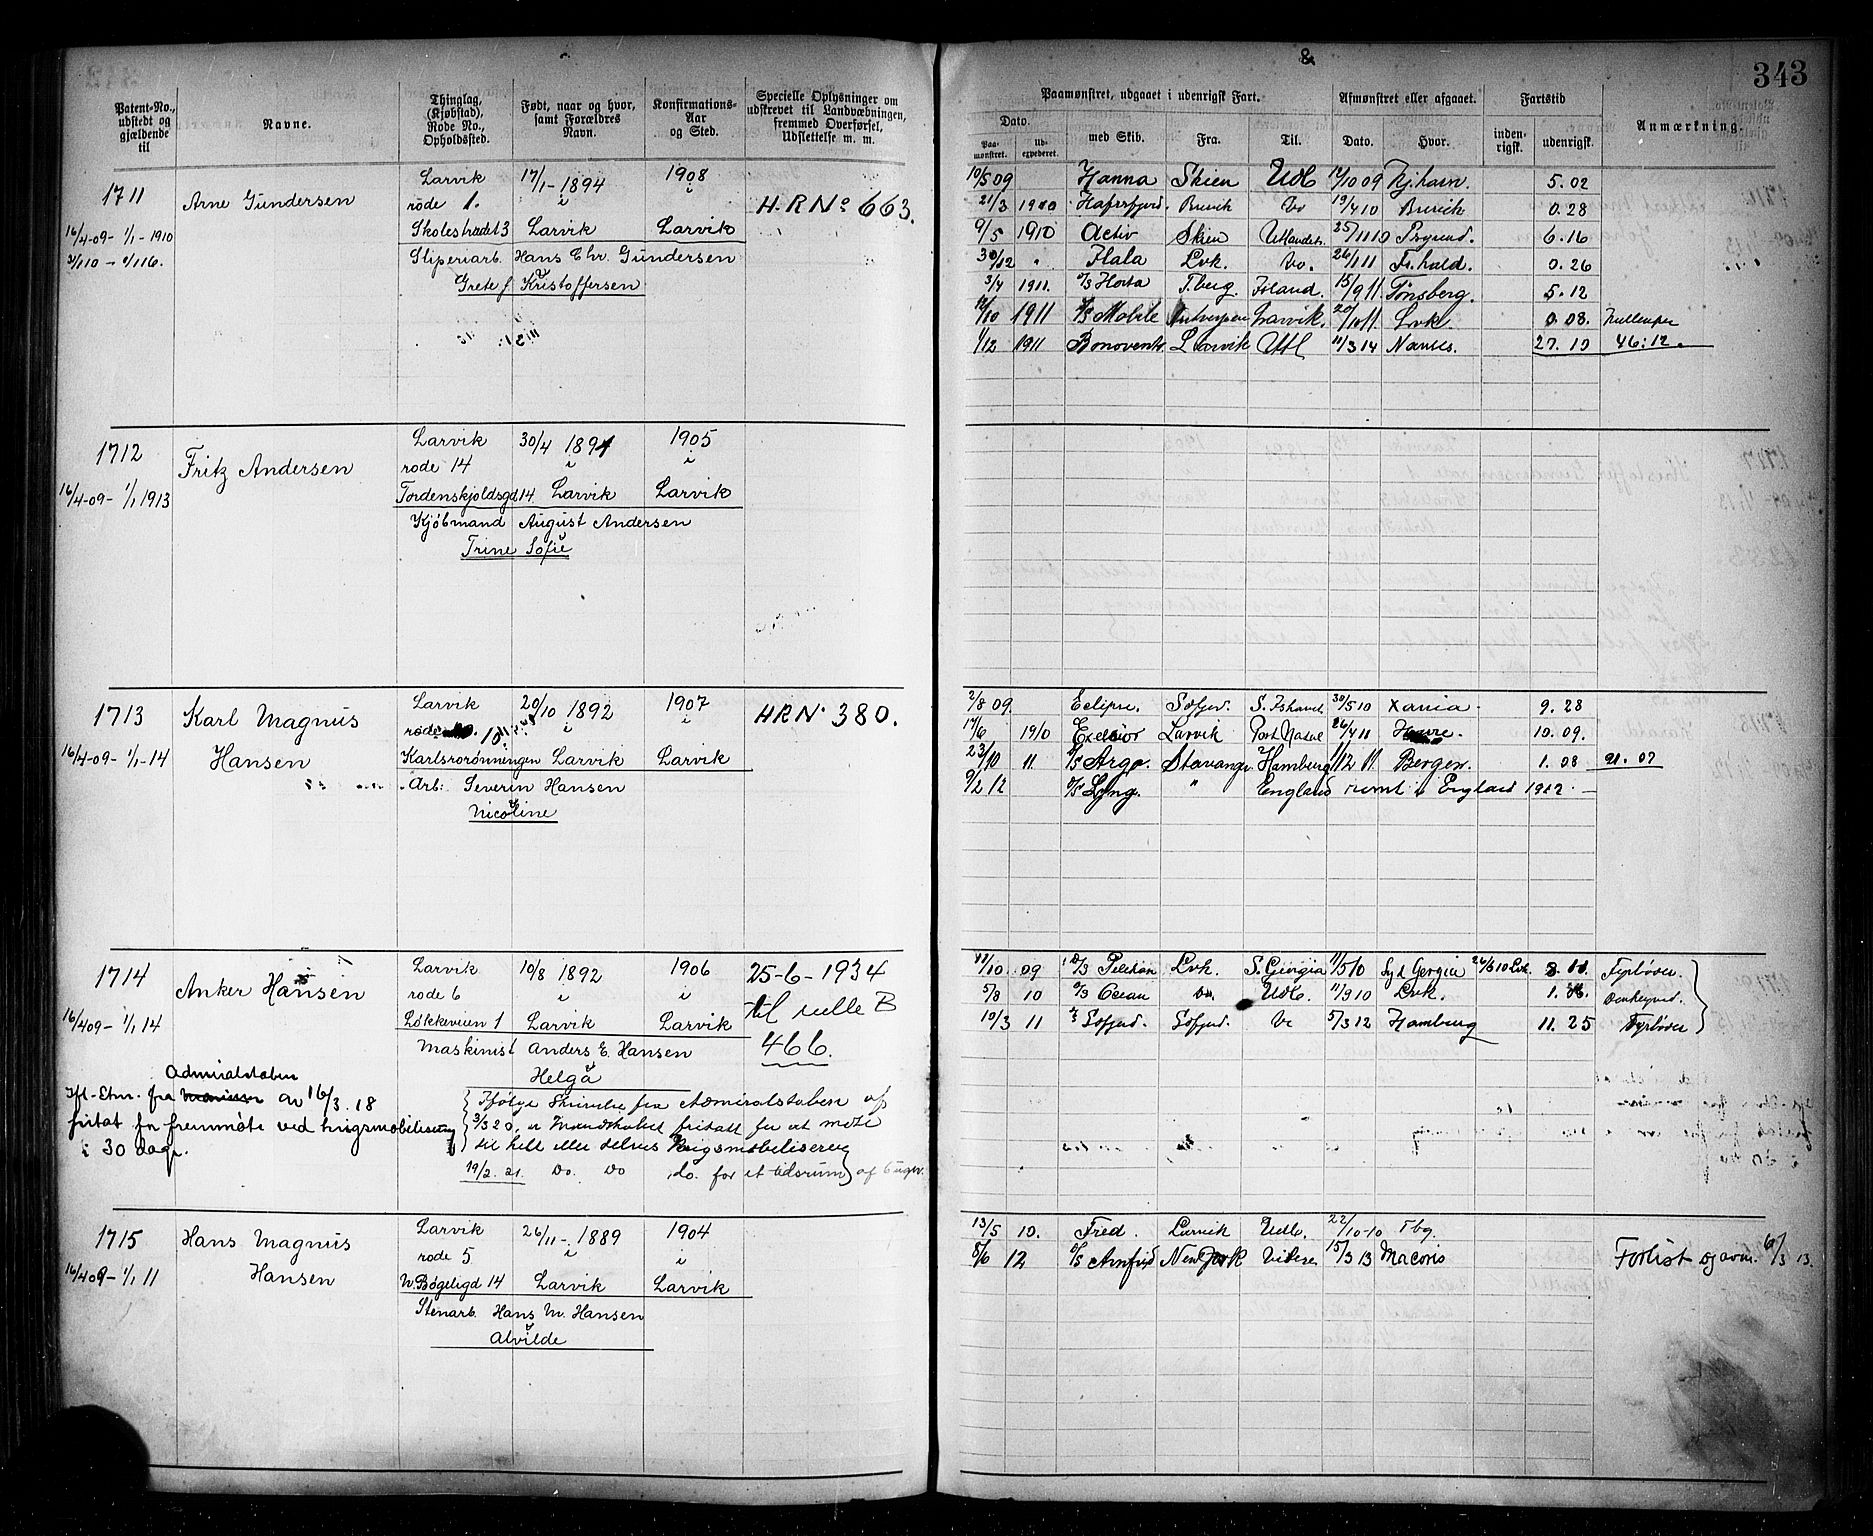 343
Patent-No., udstedt og gjældende til
Navne.
Thinglag, (Kjøbstad), Rode No., Opholdssted.
Født, naar og hvor, samt Forældres Navn.
Konfirmations-Aar og Sted.
Specielle Oplysninger om udskrevet til Landvæbningen, fremmed Overførsel, Udslettelse m. m.
Paamønstret, udgaaet i udenrigsk Fart.
Afmønstret eller afgaaet.
Fartstid
Anmærkning.
Dato.
Paa-mønstret.
Ud-expederet.
med Skib.
Fra.
Til.
Dato.
Hvor.
inden-rigsk.
udenrigsk.
1711
Arne Gundersen
Larvik 17/1-1894 1908
rode 1. i i
H.R.No 663.
16/4-09- 1/1-1910
Skolestrædet 3 Larvik Larvik
Sliperiarb. Hans Chr. Gundersen
Grete f. Kristoffersen
10/5 09 Hanna Skien Udl 12/10 09 Kj.havn. 5.02
21/3 1910 Hafrsfjord Brevik Do 19/4 10 Brevik 0.28
9/5 1910 Activ Skien Utlandet 25/11 10 Prsgrund. 6.16
30/12 " Hala Lvk. Do. 26/1 11 Fr.hald. 0.26
3/4 1911. Horta T.berg. Island. 15/9 11 Tønsberg. 5.12
12/10 1911 Mobile Antverpen Larvik. 20/10 11 Lvk. 0.08.
1/12 1911 Larvik Utl 11/3 14 27.10 46:12.
1712
Fritz Andersen
Larvik 30/4 1891 1905
rode 14 i i
16/4-09- 1/1 1913
Tordenskjoldsgd 14 Larvik Larvik
Kjøbmand August Andersen
Trine Sofie
1713
Karl Magnus Hansen
Larvik 20/10 1892 1907
rode 10 i
H.R.No. 380.
16/4-09- 1/1-14
Karlsrorønningen Larvik Larvik
Arb: Severin Hansen
Nicoline
2/8 09. Eclipse. 30/5 10 Xania. 9.28
17/6 1910 Excelsior Larvik Port Natal 26/4 11 Havre. 10.09.
23/10 11 Argo. Stavanger Hamburg 1/12 11 Bergen. 1.08 21.07
9/2 12 " England rømt i England 1912
1714
Anker Hansen
Larvik 10/8 1892 1906
rode 6 i i
16/4 09- 1/1 14
Løkkeveien 1 Larvik Larvik
25-6-1934
til rulle B
466.
Maskinist Anders E. Hansen
Helga
Admiralstaben
Ifl. fra av 16/3.18
fritat for fremmøte ved krigsmobilisering
i 30 dage.
Ifølge Skrivelse fra Admiralstaben af
3/3 20, er Mandskabet fritatt for at møte
til helt eller delvis Krigsmobilisering
19/2.21. Do. Do do. for et tidsrum af 6 uger.
12/10 09 Pelikan Lvk. S. Georgia 11/5 10 Syd Georgia Fyrbøter.
5/8 10 Ocean Do. Udl. 11/9 10 Lvk.
10/3 11 Do 5/3 12 Hamburg 11.25 Fyrbøter
1715
Hans Magnus Hansen
Larvik 26/11-1889 1904
rode 5 i i
16/4 09- 1/1 11
N. Bøgeligd 14 Larvik Larvik
Stenarb. Hans M. Hansen
Alvilde
13/5 10. Fred. Larvik Udl. 22/10-10 Tbg.
5/6 12 New York Videre 15/3 13 Macoris
Forlist 6/3 13.